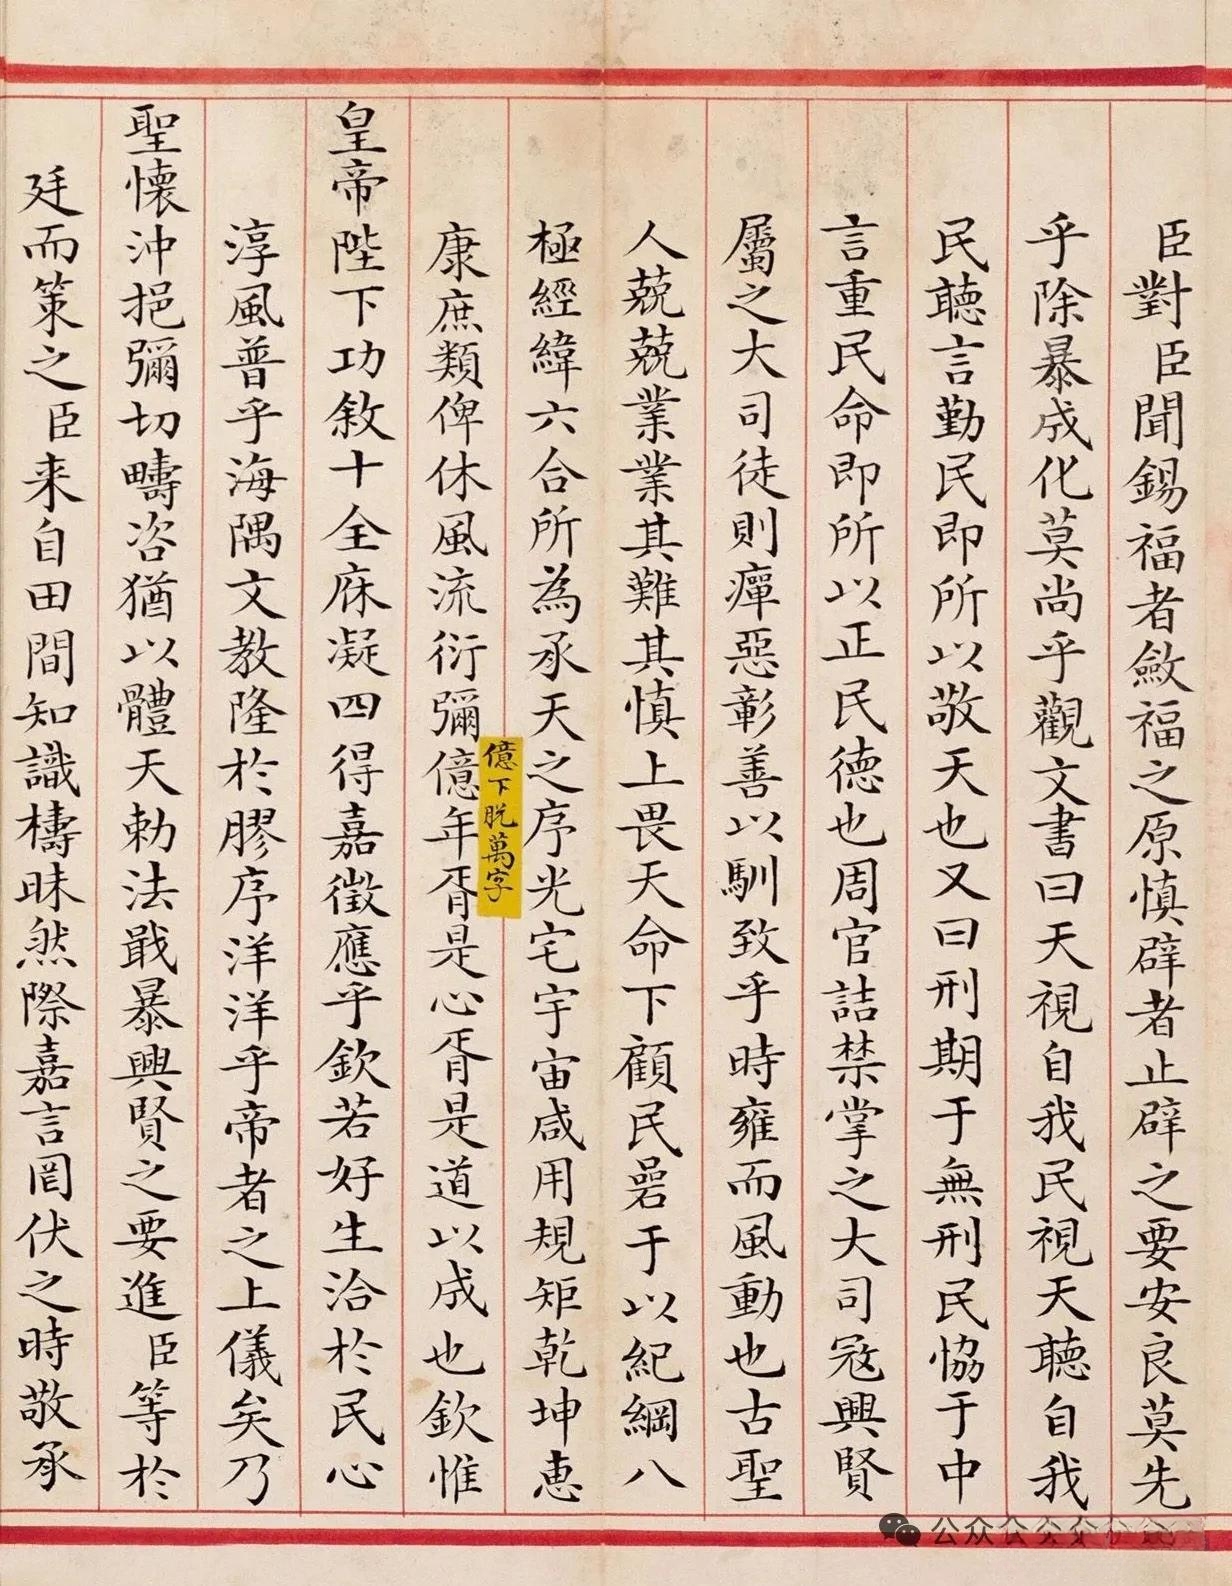 臣對臣聞錫福者斂福之原慎辟者止辟之要安良莫先
乎除暴成化莫尚乎觀文書曰天視自我民視天聽自我
民聽言勤民即所以敬天也又曰刑期于無刑民協于中
言重民命即所以正民德也周官詰禁掌之大司冦興賢
屬之大司徒則癉惡彰善以馴致乎時雍而風動也古聖
人兢兢業業其難其慎上畏天命下顧民碞于以紀綱八
極經緯六合所為承天之序光宅宇宙咸用規矩乾坤惠
億下脫萬字
康庶類俾休風流衍彌億年胥是心胥是道以成也欽惟
皇帝陛下功敘十全庥凝四得嘉徵應乎欽若好生洽於民心
淳風普乎海隅文教隆於膠序洋洋乎帝者之上儀矣乃
聖懷沖挹彌切疇咨猶以體天勅法戢暴興賢之要進臣等於
廷而策之臣来自田間知識檮昧然際嘉言罔伏之時敬承
公众